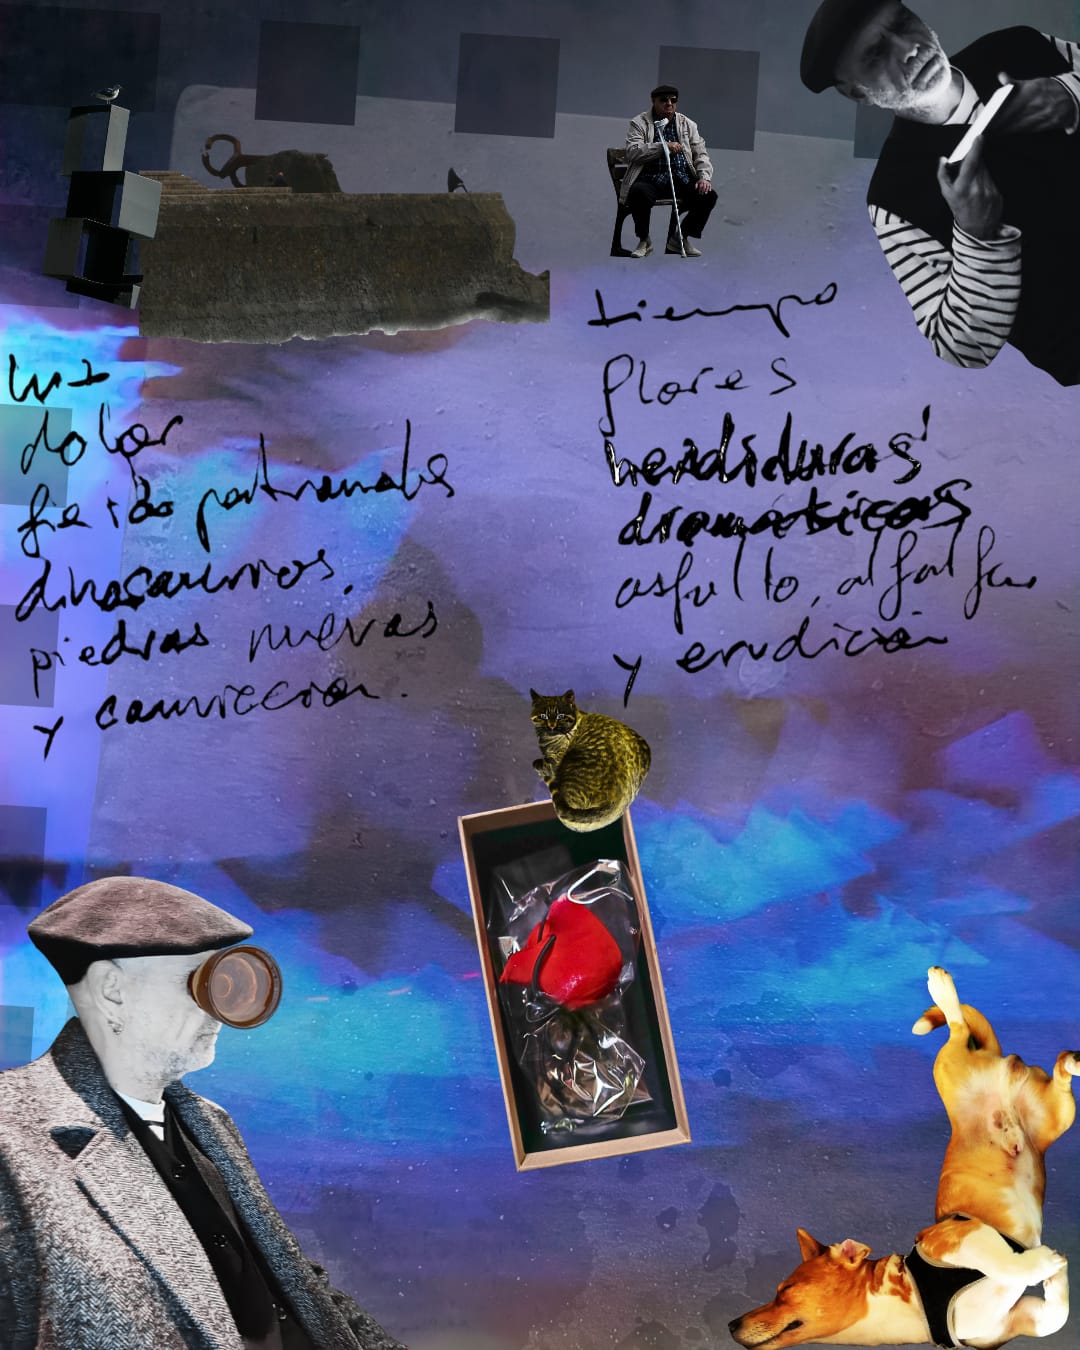 luz
dolor
patronales
dinosaurios,
piedras nuevas
y convicción.
tiempo
flores
hendiduras
dramáticas
asfalto, alfalfa
y erudición